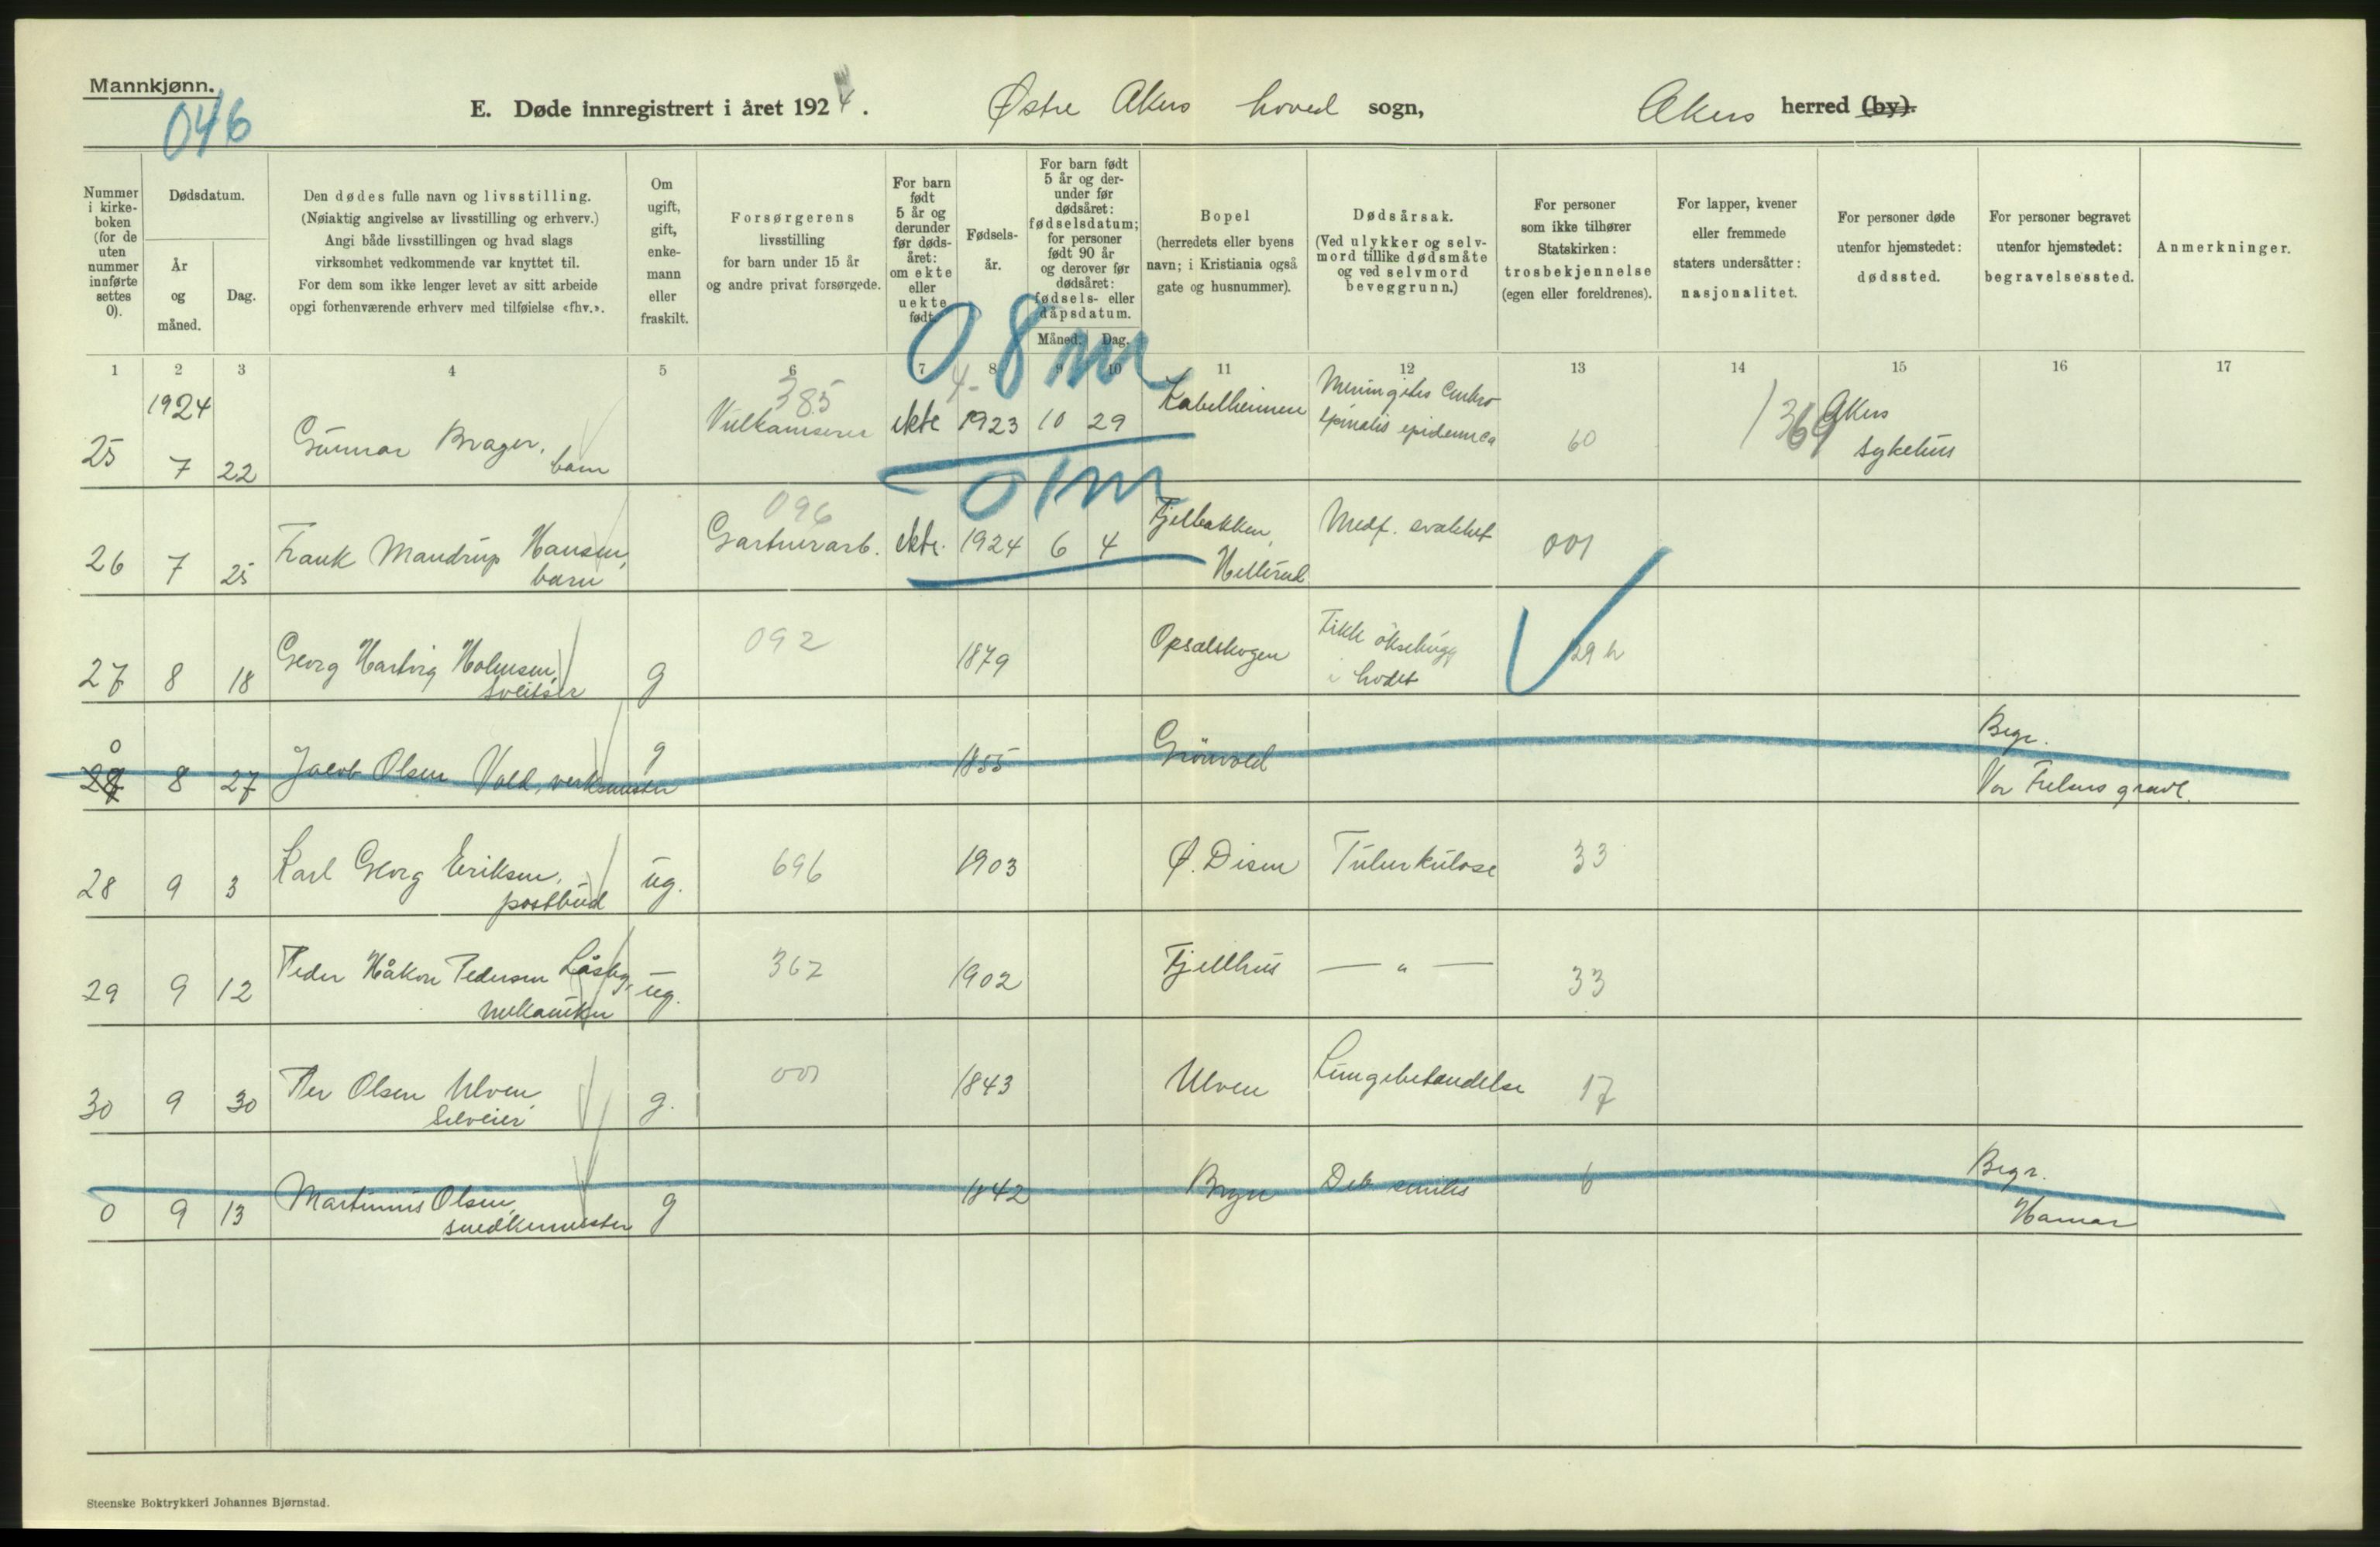 Mannkjønn.
046
E. Døde innregistrert i året 1924. Østre Akers hoved sogn, Akers herred (by).
Nummer i kirkeboken (for de uten nummer innførte settes 0).
Dødsdatum.
År og måned.
Dag.
Den dødes fulle navn og livsstilling.
(Nøiaktig angivelse av livsstilling og erhverv.)
Angi både livsstillingen og hvad slags
virksomhet vedkommende var knyttet til.
For dem som ikke lenger levet av sitt arbeide
opgi forhenværende erhverv med tilføielse «fhv.».
Om ugift, gift, enkemann eller fraskilt.
Forsørgerens
livsstilling
for barn under 15 år
og andre privat forsørgede.
For barn født 5 år og derunder før dødsåret: om ekte eller uekte født.
Fødselsår.
For barn født 5 år og derunder før dødsåret: fødselsdatum; for personer født 90 år og derover før dødsåret: fødsels- eller dåpsdatum.
Måned. Dag.
Bopel
(herredets eller byens
navn; i Kristiania også
gate og husnummer).
Dødsårsak.
(Ved ulykker og selvmord tillike dødsmåte
og ved selvmord
beveggrunn.)
For personer
som ikke tilhører
Statskirken:
trosbekjennelse
(egen eller foreldrenes).
For lapper, kvener
eller fremmede
staters undersåtter:
nasjonalitet.
For personer døde
utenfor hjemstedet:
dødssted.
For personer begravet
utenfor hjemstedet:
begravelsessted.
Anmerkninger.
1 2 3 4 5 6 7 8 9 10 11 12 13 14 15 16 17
08m
1924
385
25 7 22 Gunnar Brager, barn Vulkaniserer ekte 1923 10 29 Kabelheimen Meningitis cerebro spinalis epidemica 60 369 Akers sykehus
01m
096
26 7 25 Frank Mandrup Hansen, barn Gartnerarb. ekte. 1924 6 4 Fjellbakken, Hellerud Medf. svakhet 001
27 8 18 Georg Hartvig Holmsen, sveitser g 092 1879 Opsalskogen Fikk öksehugg i hodet 29 h
0 8 27 Jacob Olsen Vold, verksmester g 1855 Grönvold Begr. Vor Frelsers gravl.
28 9 3 Karl Georg Eriksen, postbud ug. 696 1903 Ø. Disen Tuberkulose 33
29 9 12 Peder Håkon Pedersen Låsby, mekaniker ug. 362 1902 Fjellhus — " — 33
30 9 30 Per Olsen Ulven, Selveier g. 001 1843 Ulven Lungebetændelse 17
0 9 13 Martinius Olsen, snedkermester g 1842 Bryn Deb. senilis 6 Begr. Hamar
Steenske Boktrykkeri Johannes Bjørnstad.